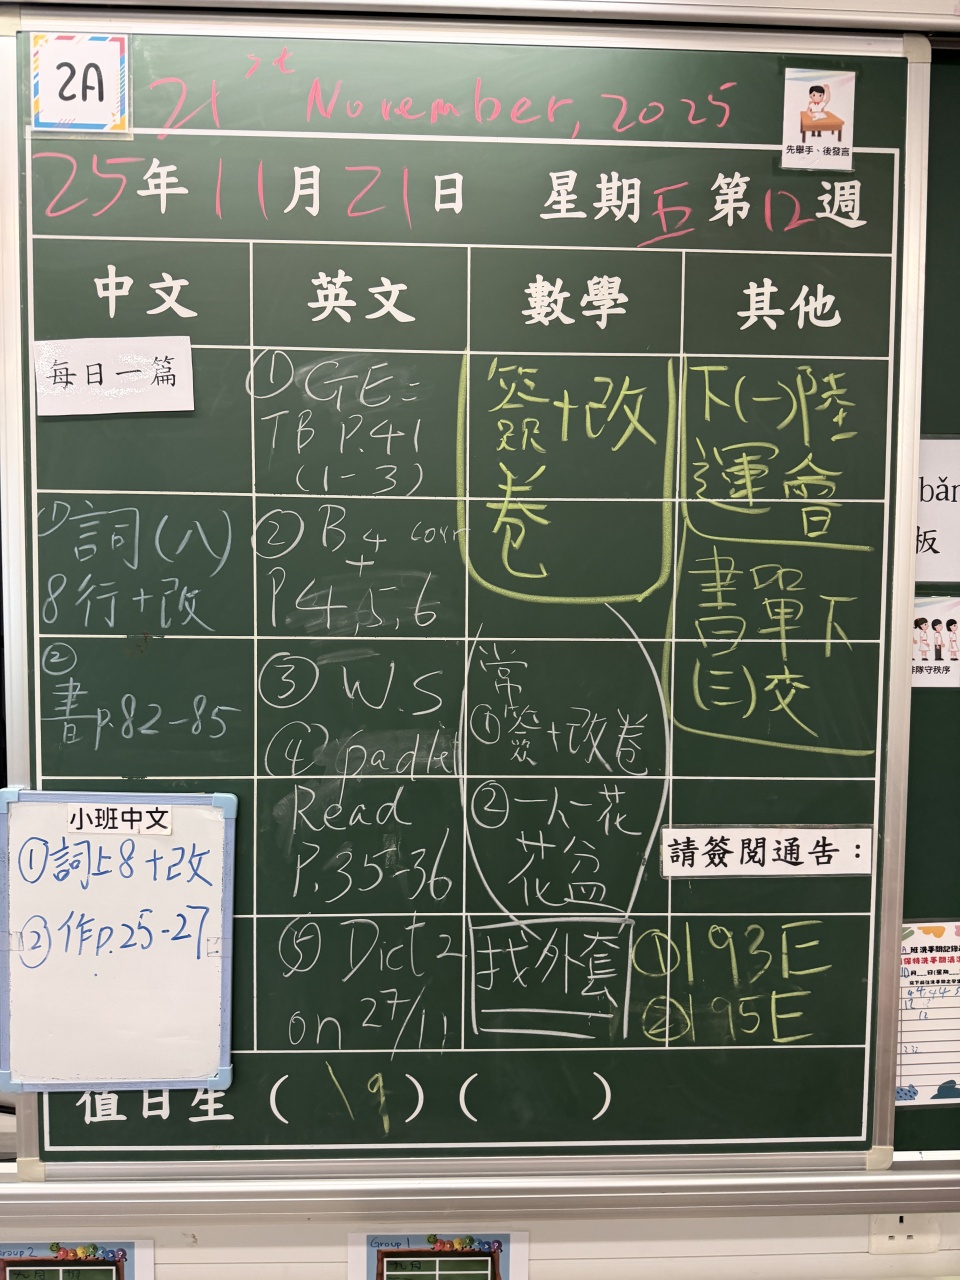 2A
21st November, 2025
先舉手、後發言
25年11月21日 星期五第12週
中文 英文 數學 其他
每日一篇
① 詞(八)
8行+改
②
書p.82-85
小班中文
①詞上8+改
②作p.25-27
① GE:
TB P.41
(1-3)
② B4 corr
+
P4,5,6
③ W.S
④ padlet
Read
P.35-36
⑤ Dict 2
on 27/11
簽+改
卷
常
①簽+改卷
②一人一花
花盆
找外套
下(一)陸
運會
書單下
(三)交
請簽閱通告：
①193E
②195E
值日生 ( 19 ) ( )
bǎn
板
排隊守秩序
Group 2
Group 1